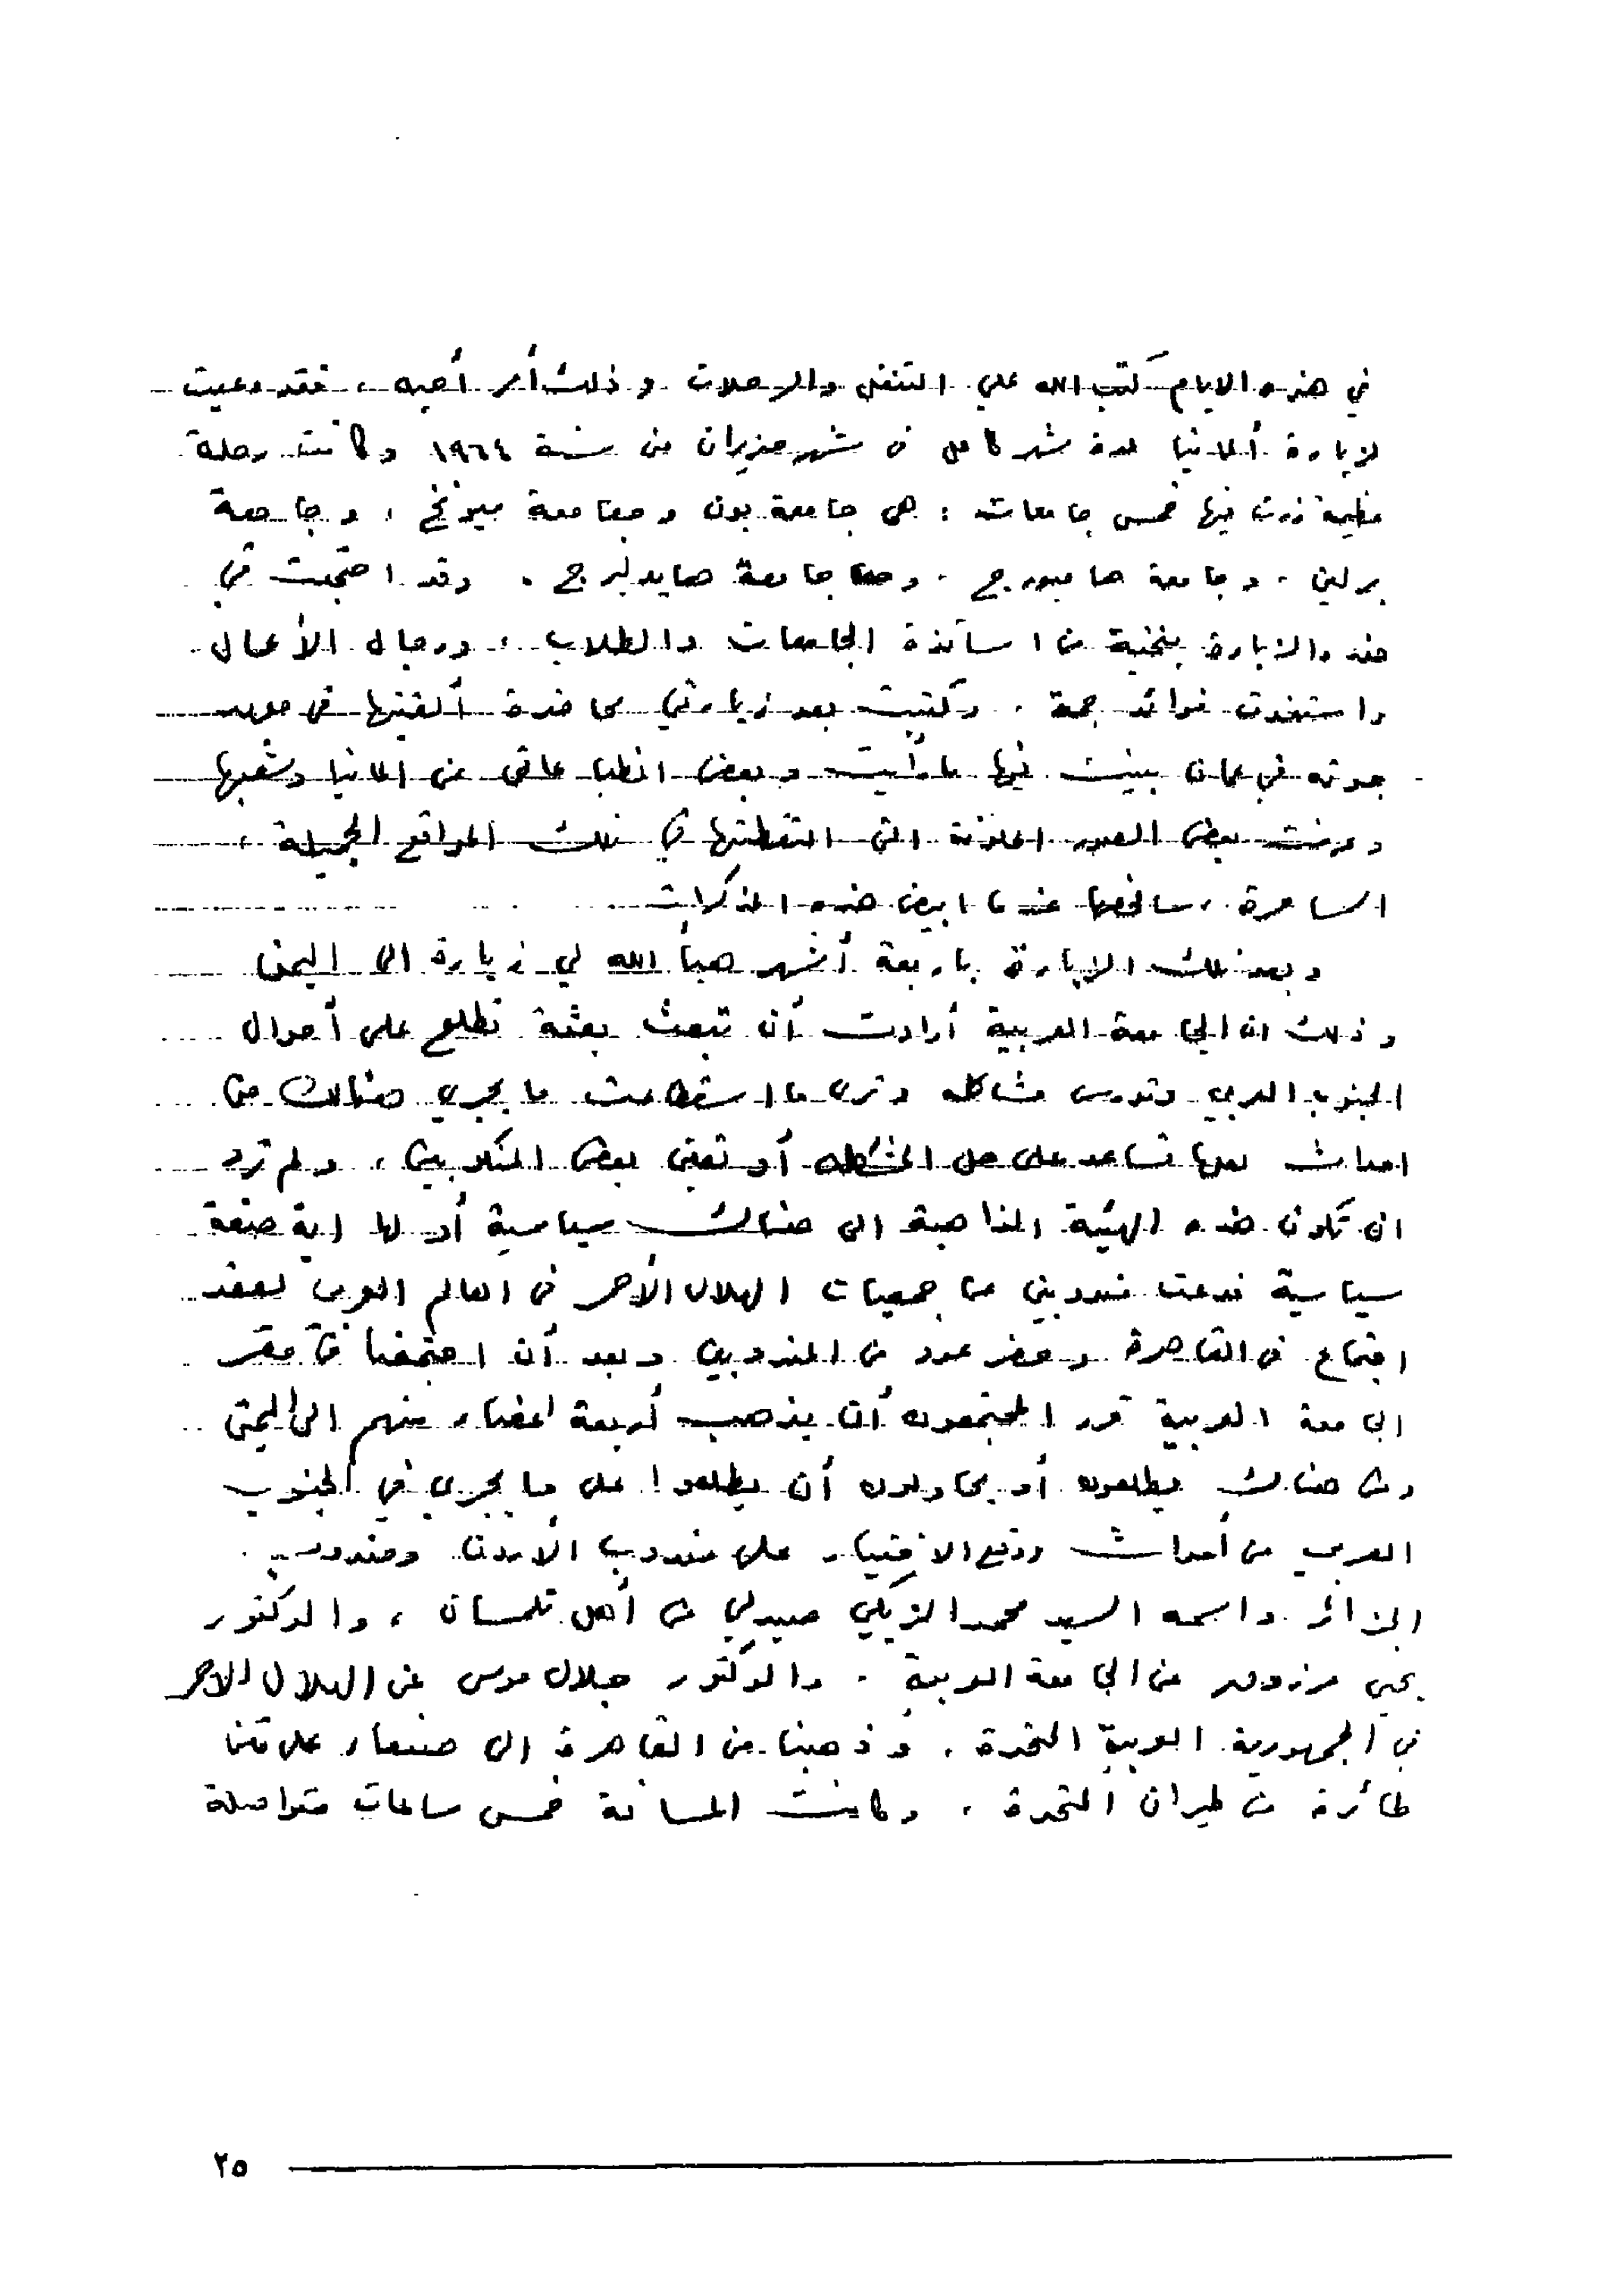 في هذه الايام كتب الله علي التنقل والرحلات وذلك أمر أحبه ، فقد دعيت
لزيارة ألمانيا لمدة شهر كامل في شهر حزيران من سنة ١٩٦٤ وكانت رحلة
عظيمة زرت فيها خمس جامعات : هي جامعة بون وجامعة ميونخ ، وجامعة
برلين . وجامعة هامبورج . وجامعة هايدلبرج . وقد اجتمعت في
هذه الزيارة بنخبة من اساتذة الجامعات والطلاب ، ورجال الأعمال
واستفدت فوائد جمة . وكتبت بعد زيارتي محاضرة ألقيتها في
جوته في عمان بينت فيها ما رأيت وبعض انطباعاتي عن المانيا وشعبها
وعرضت بعض الصور الملونة التي التقطتها في تلك المواقع الجميلة ،
الساحرة ، سألخصها عندما ابيض هذه المذكرات
وبعد تلك الزيارة باربعة أشهر هيأ الله لي زيارة الى اليمن
وذلك ان الجامعة العربية أرادت أن تبعث بعثة تطلع على أحوال
الجنوب العربي وتدرس مشاكله وترى ما استطاعت ما يجري هنالك من
احداث لعلها تساعد على حل المشكلة أو تعين بعض المنكوبين ، ولم ترد
ان تكون هذه الهيئة الذاهبة الى هنالك سياسية أو لها اية صبغة
سياسية فدعت مندوبين من جمعيات الهلال الأحمر في العالم العربي لعقد
اجتماع في القاهرة وحضر عدد من المندوبين وبعد أن اجتمعنا في مقر
الجامعة العربية قرر المجتمعون أن يذهب أربعة اعضاء منهم الى اليمن
ومن هنالك يطلعون أو يحاولون أن يطلعوا على ما يجري في الجنوب
العربي من أحداث ووقع الاختيار على مندوب الأردن ومندوب
الجزائر واسمه السيد محمد الزبكلي صيدلي من أهل تلمسان ، والدكتور
يحيى مرزوق من الجامعة العربية . والدكتور جلال موسى عن الهلال الاحمر
في الجمهورية العربية المتحدة . وذهبنا من القاهرة الى صنعاء على متن
طائرة من طيران المتحدة . وكانت المسافة خمس ساعات متواصلة
٢٥